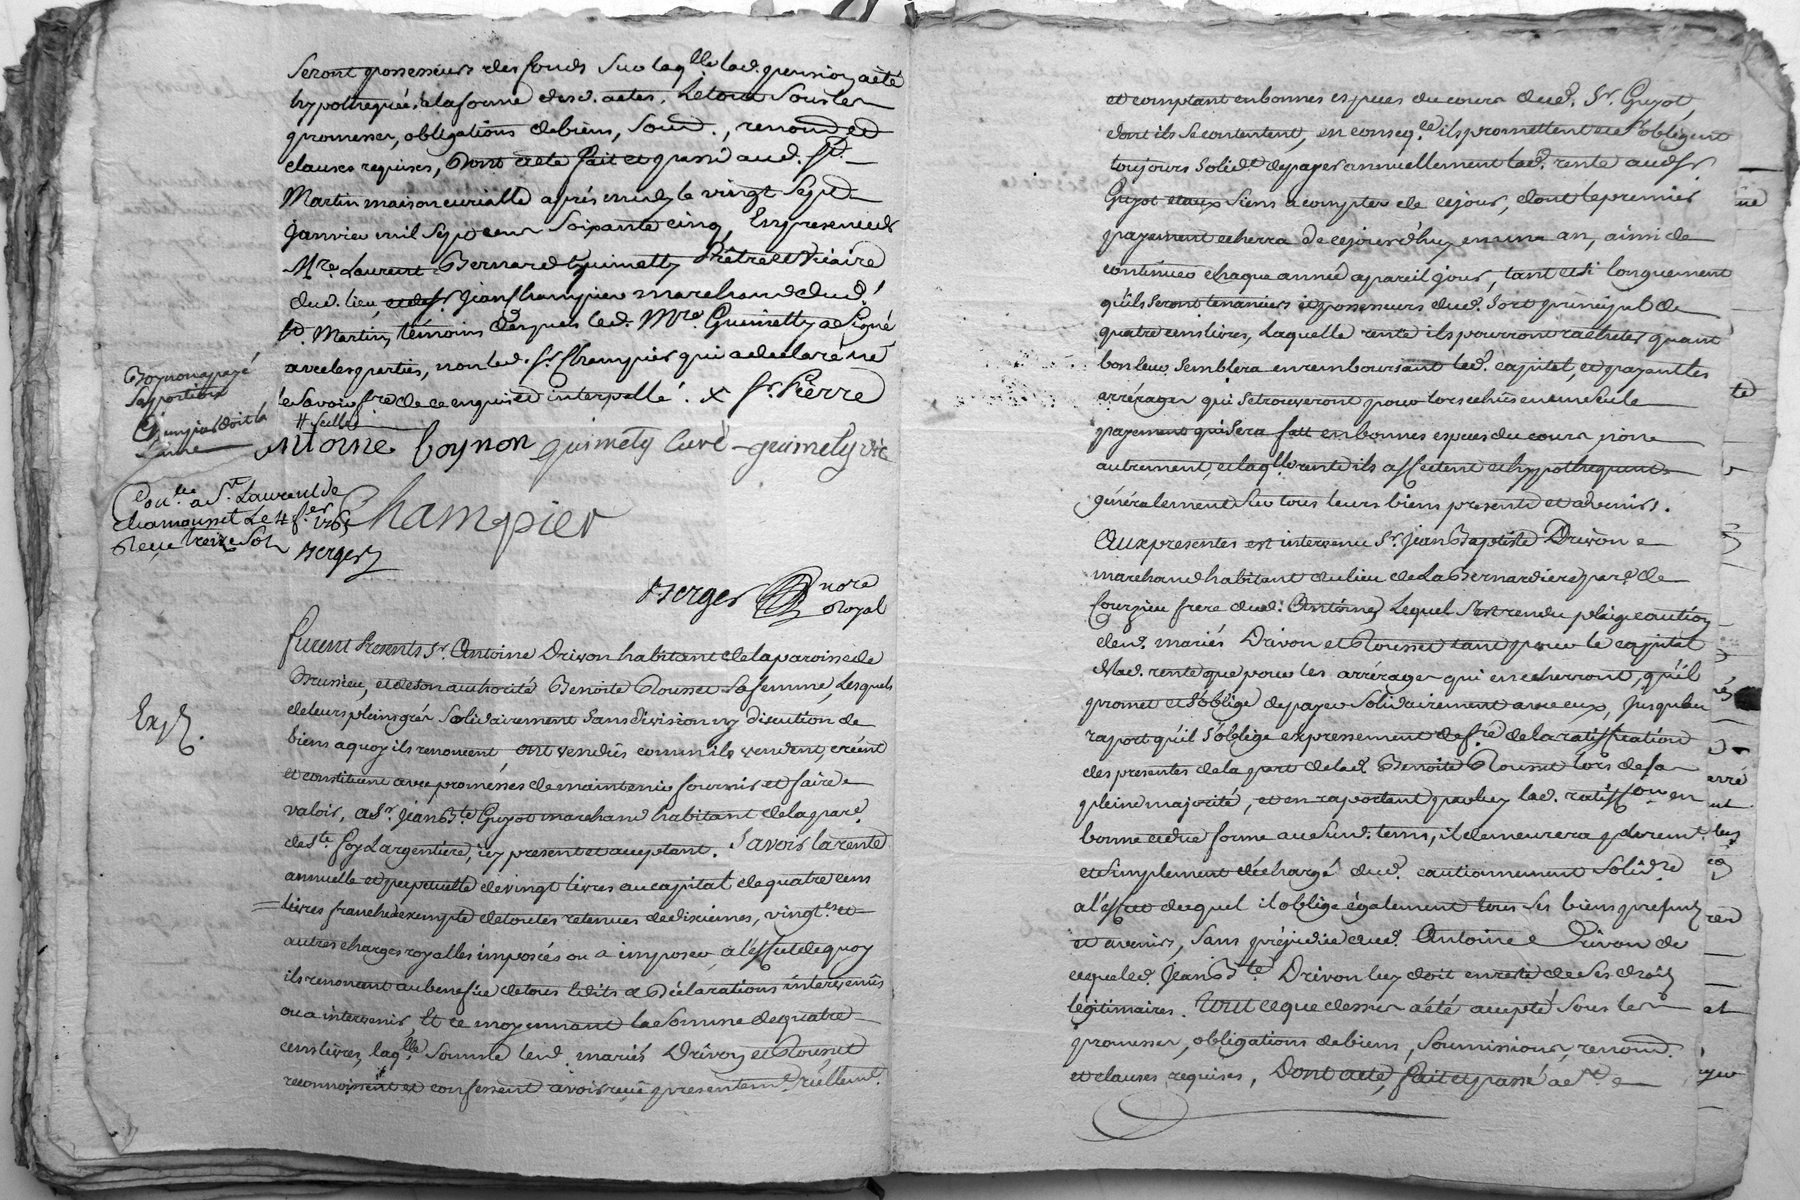 seront possesseurs des fonds sur laq.lle lad. pension a été
hypothequée, a la forme desd. actes. Le tout sous les
promesses, obligations de biens, soum., renond et
clauses requises, Dont acte fait et passé aud. St.
Martin maison curialle après midy le vingt sept
janvier mil sept cens soixante cinq, En presence de
M.re Laurent Bernard Guimetty Prêtre et Vicaire
dud. lieu, et de sr jean Champier marchand dud.
St. Martin, témoins desquels led. M.re Guimetty a signé
avec les parties, non led. sr. Champier qui a declaré ne
le savoir fre de ce enquis et interpellé. x sr. Pierre
Boynon a payé
sa portion
Champier doit la
sienne
Antoine Boynon guimety curé guimety vic
Champier
Con.lle a St. Laurent de
chamousset Le 4 f.er 1765
Reçu treize sols
Berger
Berger no.re
Royal
Furent Presents sr. Antoine Drivon habitant de la paroisse de
Brussieu, et de son authorité Benoite Rousset sa femme, Lesquels
de leurs pleins grés solidairement sans division ny discution de
biens a quoy ils renoncent, ont vendus comm'ils vendent, créent
et constituent avec promesses de maintenir fournir et faire
valoir, a Sr. jean B.te Guyot marchand habitant de la par.
de Ste. Foy Largentière, icy present et acceptant. Savoir la rente
annuelle et perpetuelle de vingt livres au capital de quatre cens
livres franche et exempte de toutes retenues de dixiemes, vingt.es et
autres charges royalles imposées ou a imposer, a l'effet de quoy
ils renoncent au benefice de tous Edits & Déclarations intervenus
ou a intervenir, Et ce moyennant la somme de quatre
cens livres, laq.lle somme lesd. mariés Drivon et Rousset
reconnoissent et confessent avoir reçue presentem.t réellem.t
Exp.
et comptant en bonnes espèces du cours dud. Sr. Guyot
dont ils se contentent, en conseq.ce ils promettent et s'obligent
toujours solid.t de payer annuellement lad. rente aud. Sr
Guyot et aux siens a compter de ce jour, dont le premier
payement echerra de ce jourd'huy en un an, ainsi de
continuer chaque année a pareil jour, tant et si longuement
qu'ils seront tenanciers et possesseurs dud. sort principal de
quatre cens livres, Laquelle rente ils pourront rachêter quant
bon leur semblera en remboursant led. capital, et payant les
arrérages qui se trouveront pour lors echus en un seul
payement qui sera fait en bonnes espèces du cours et non
autrement, et a laq.lle rente ils affectent et hypothequent
généralement sur tous leurs biens presents et advenirs.
Aux presentes est intervenu Sr. Jean Baptiste Drivon
marchand habitant du lieu de La Bernardiere par.se de
Courzieu frere dud. Antoine, Lequel s'est rendu pleige caution
desd. mariés Drivon et Rousset tant pour le capital
de lad. rente que pour les arrérages qui en echerront, qu'il
promet et s'oblige de payer solidairement avec eux, jusqu'au
raport qu'il s'oblige expressement de f.re de la ratiffication
des presentes de la part de lad. Benoite Rousset lors de sa
pleine majorité, et en raportant par luy lad. ratiff.on en
bonne et due forme au susd. tems, il demeurera purem.t
et simplement déchargé dud. cautionnement solid.re
a l'effet duquel il oblige également tous ses biens presents
et avenirs, sans préjudice aud. Antoine Drivon de
ce que led. Jean B.te Drivon luy doit en reste de ses droits
légitimaires. Tout ce que dessus a été accepté sous les
promesses, obligations de biens, soumissions, renond.
et clauses requises, Dont acte, fait et passé a Ste